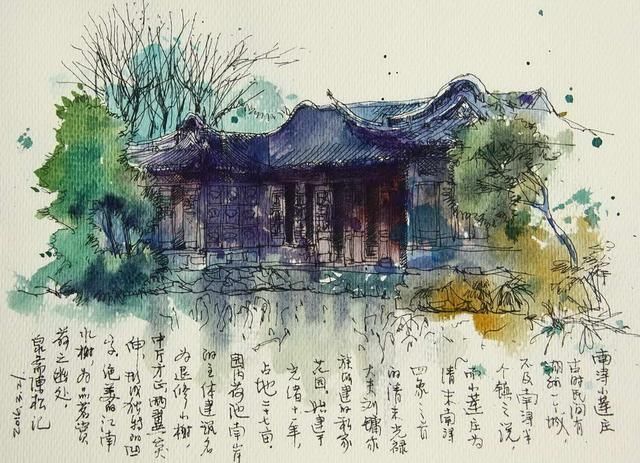 南浔小莲庄
古时民间有
湖州一个城，
不及南浔半
个镇之说，
而小莲庄为
清末南浔
四象之首
的清末光禄
大夫刘墉家
族所建的私家
花园，始建于
光绪十一年，
占地二十七亩。
园内荷池南岸
的主体建筑名
为退修小榭，
中厅方正两翼突
伸，形成独特的凹
字，绝美的江南
水榭，为品茗赏
荷之幽处。